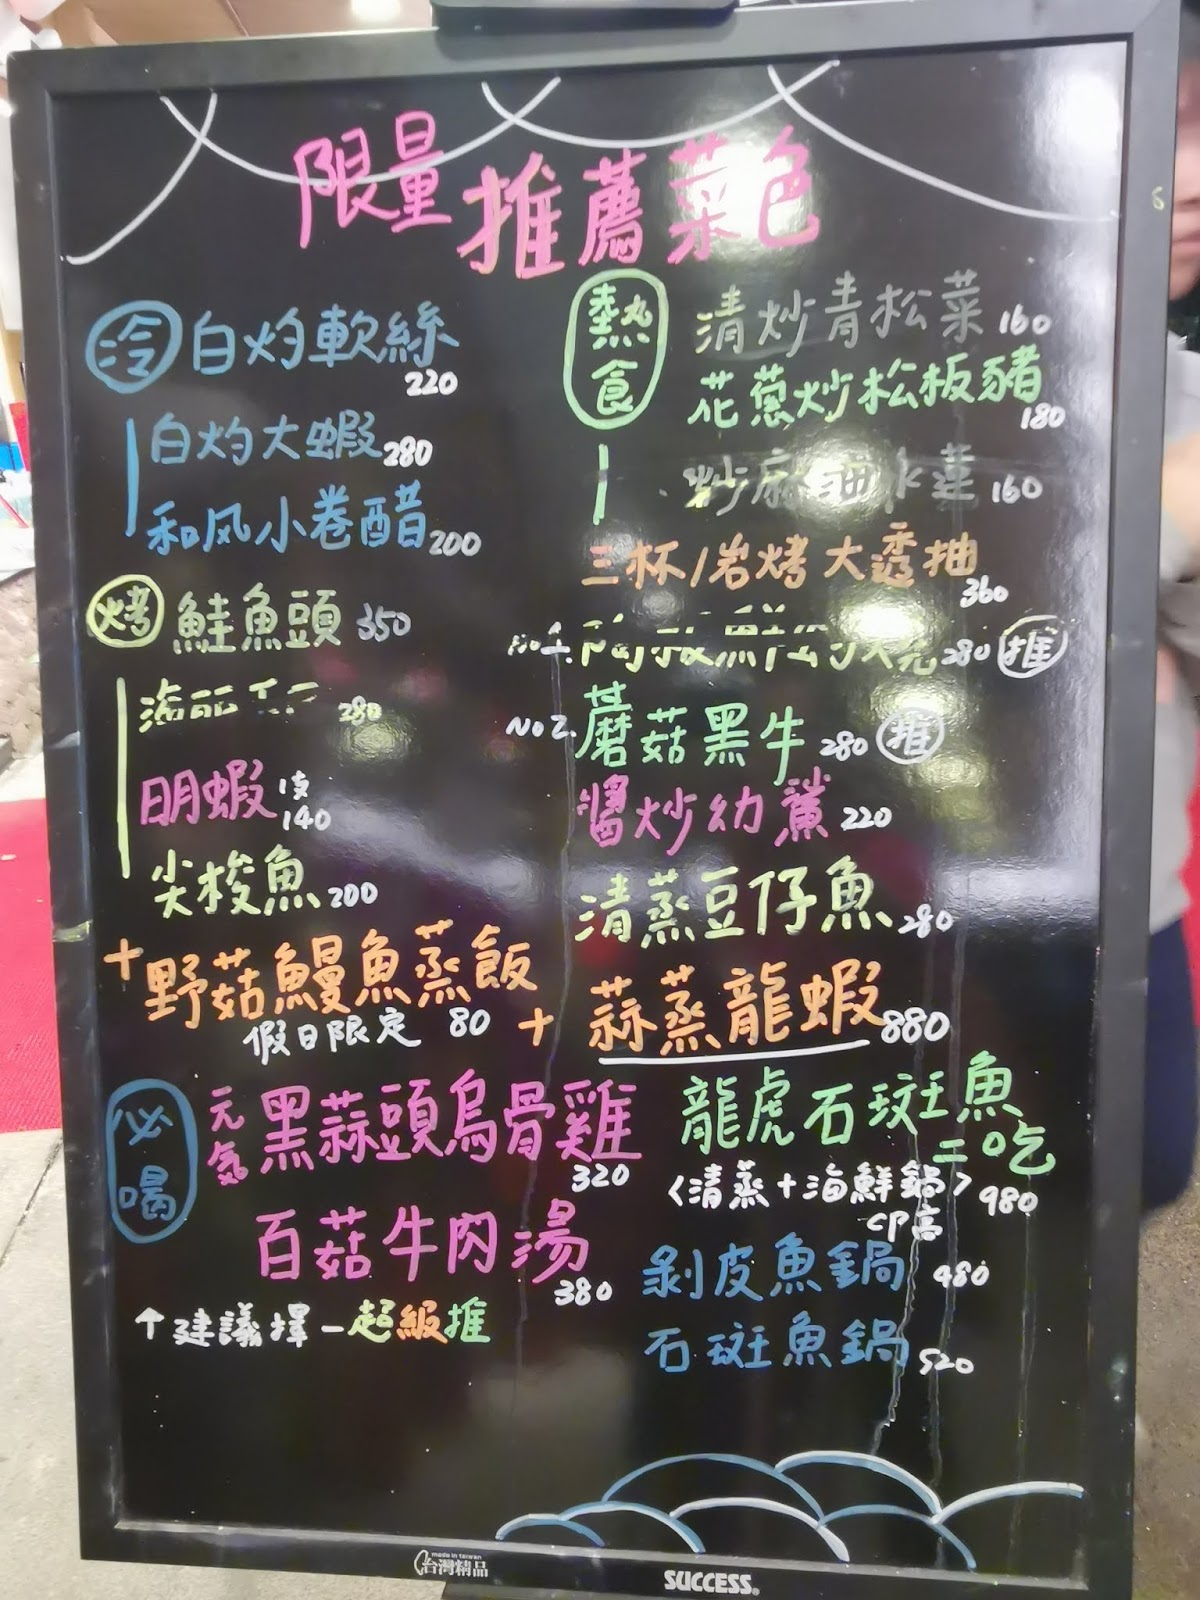 限量推薦菜色
冷 白灼軟絲 220
白灼大蝦 280
和风小卷醋 200
烤 鮭魚頭 350
280
明蝦 1支 140
尖梭魚 200
+野菇鰻魚蒸飯
假日限定 80
必喝 元気 黑蒜頭烏骨雞 320
百菇牛肉湯 380
↑建議擇一超級推
熱食 清炒青松菜 160
花蔥炒松板豬 180
炒麻油水蓮 160
三杯/岩烤大透抽 360
No1. 280 推
No2. 蘑菇黑牛 280 推
醬炒幼鯊 220
清蒸豆仔魚 280
+ 蒜蒸龍蝦 880
龍虎石斑魚
二吃
<清蒸+海鮮鍋> 980
CP高
剝皮魚鍋 480
石斑魚鍋 520
made in taiwan
台灣精品
SUCCESS®